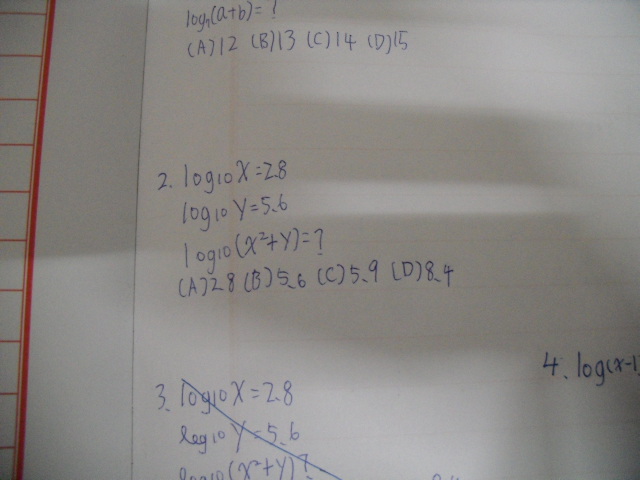 log₇(a+b)=?
(A)12 (B)13 (C)14 (D)15
2. log10 X=2.8
log10 Y=5.6
log10(X²+Y)=?
(A)2.8 (B)5.6 (C)5.9 (D)8.4
4. log(x-1)
3. log10 X=2.8
log10 Y=5.6
log10(X²+Y)?